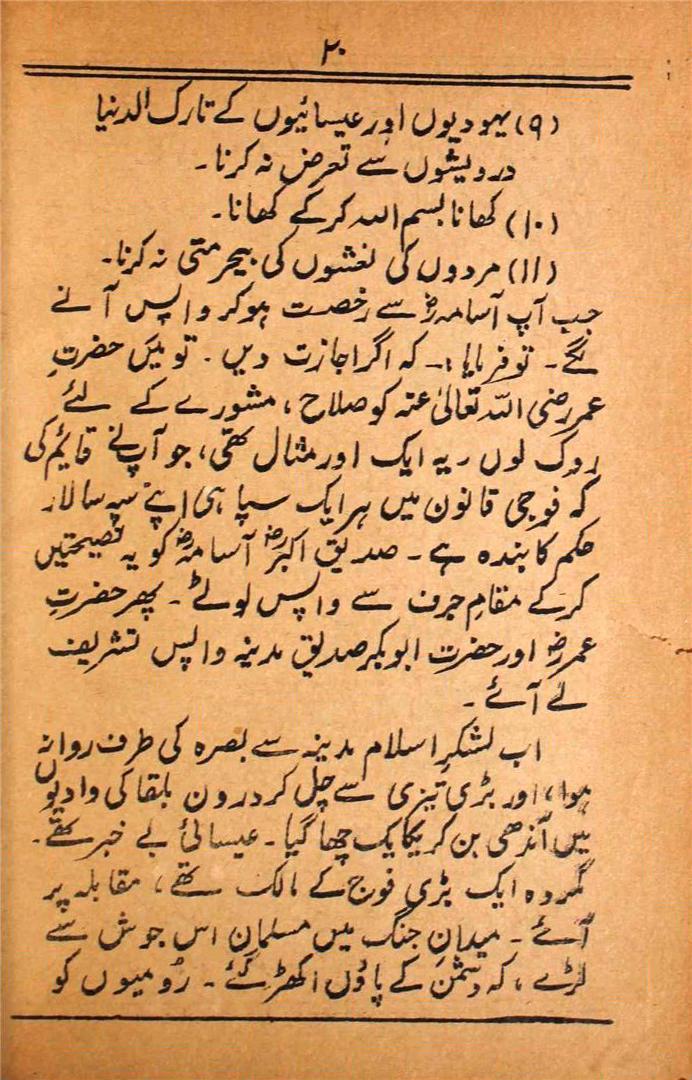 ۲۰
(۹) یہودیوں اور عیسائیوں کے تارک الدنیا
درویشوں سے تعرض نہ کرنا۔
(۱۰) کھانا بسم اللہ کر کے کھانا۔
(۱۱) مردوں کی نعشوں کی بیحرمتی نہ کرنا۔
جب آپ آسامہؓ سے رخصت ہو کر واپس آنے
لگے۔ تو فرمایا:۔ کہ اگر اجازت دیں۔ تو میں حضرتِ
عمر رضی اللہ تعالیٰ عنہ کو صلاح، مشورے کے لئے
روک لوں۔ یہ ایک اور مثال تھی، جو آپ نے قائیم کی
کہ فوجی قانون میں ہر ایک سپاہی اپنے سپہ سالار
حکم کا بندہ ہے۔ صدیق اکبرؓ آسامہؓ کو یہ نصیحتیں
کر کے مقامِ جرف سے واپس لوٹے۔ پھر حضرتِ
عمرؓ اور حضرت ابوبکر صدیق مدینہ واپس تشریف
لے آئے۔
اب لشکرِ اسلام مدینہ سے بصرہ کی طرف روانہ
ہوا، اور بڑی تیزی سے چل کر درون بلقا کی وادیوں
میں آندھی بن کر یکایک چھا گیا۔ عیسائی بے خبر تھے۔
گمر وہ ایک بڑی فوج کے مالک تھے، مقابلہ پر
آئے۔ میدانِ جنگ میں مسلمان اس جوش سے
لڑے، کہ دشمن کے پاؤں اکھڑ گئے۔ رُومیوں کو